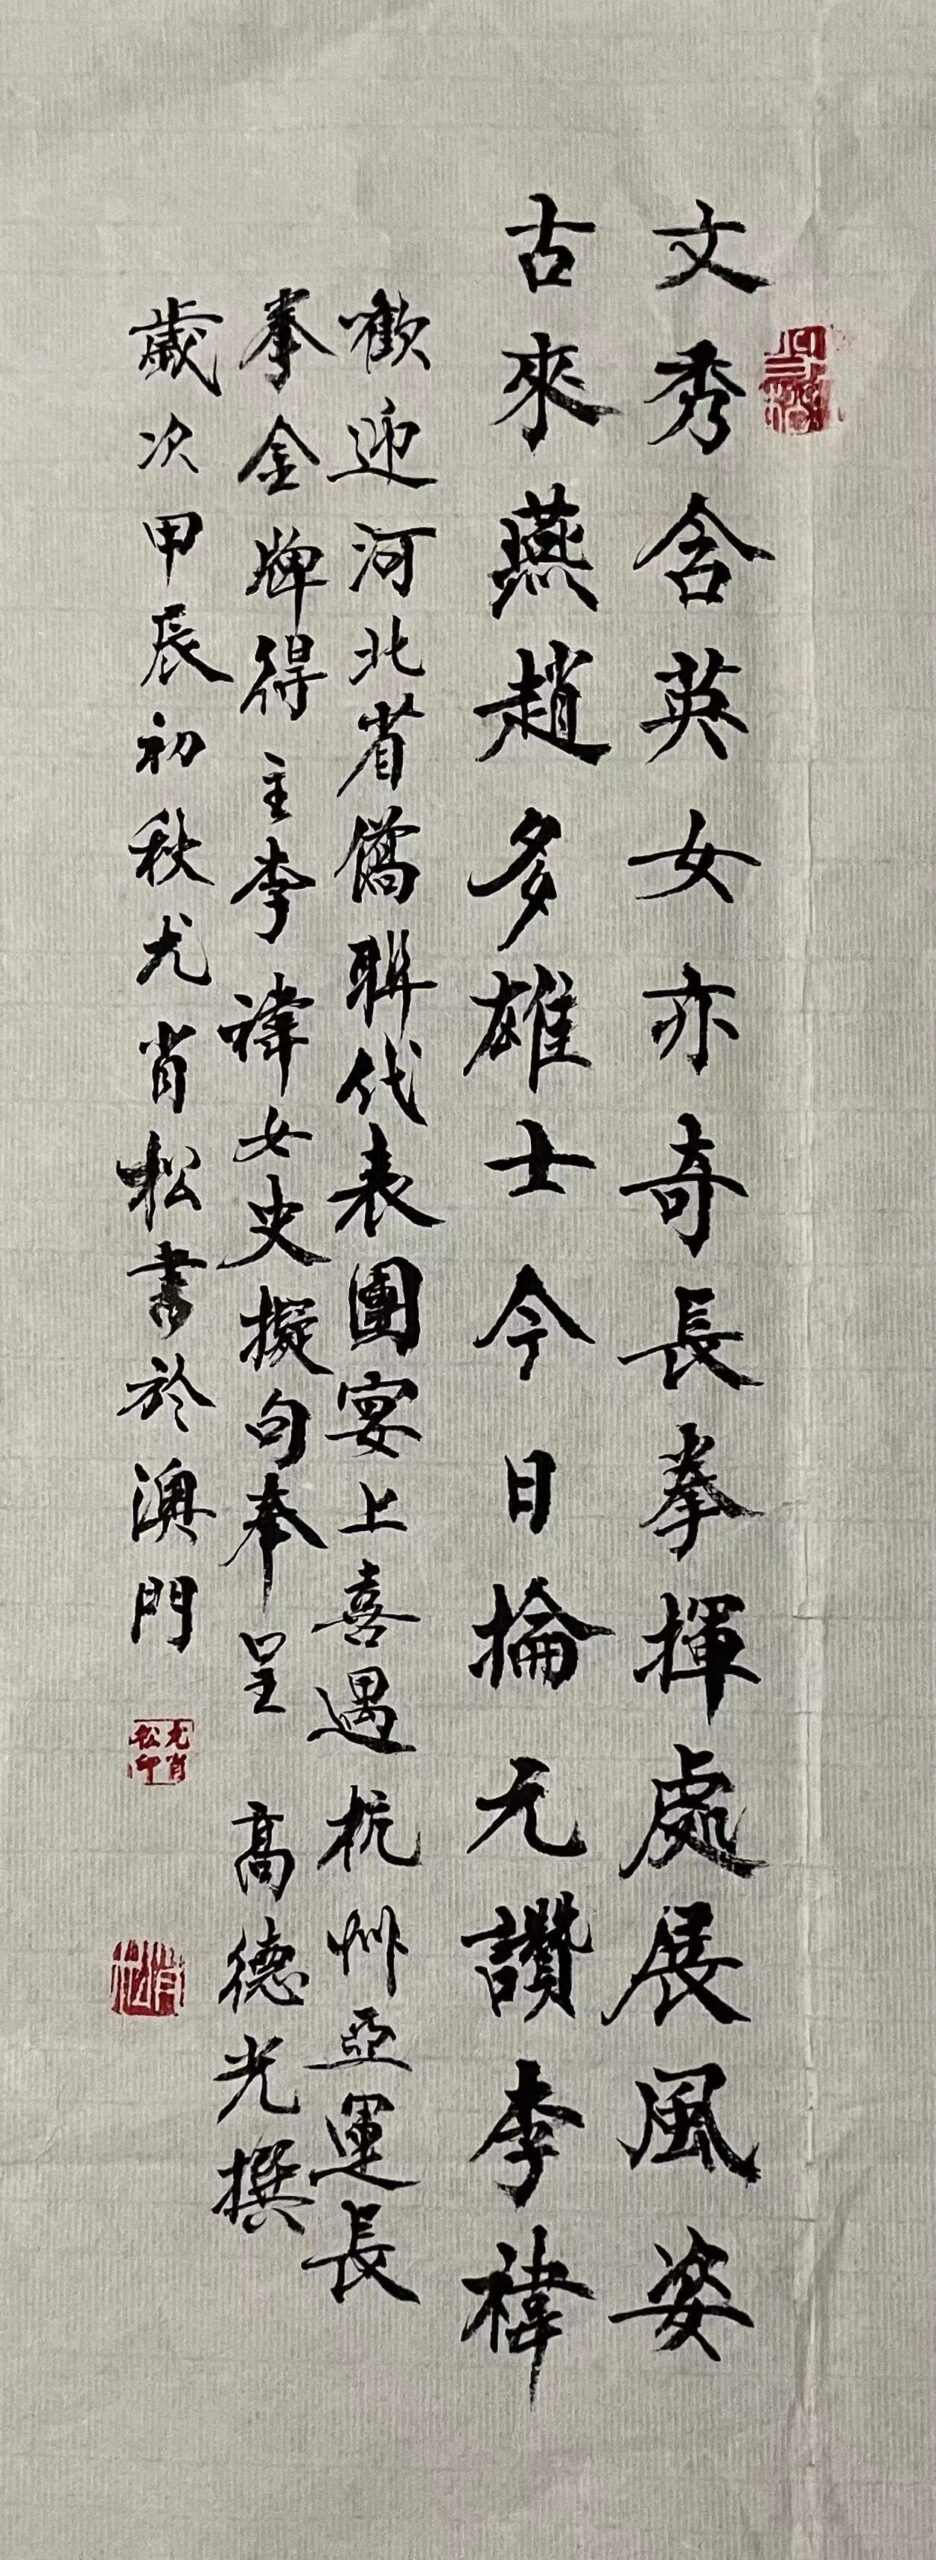 文秀含英女亦奇長拳揮處展風姿
古來燕趙多雄士今日掄元讚李褘
歡迎河北省僑聯代表團宴上喜遇杭州亞運長
拳金牌得主李褘女史擬句奉呈 高德光撰
歲次甲辰初秋尤肖松書於澳門
尤肖松印